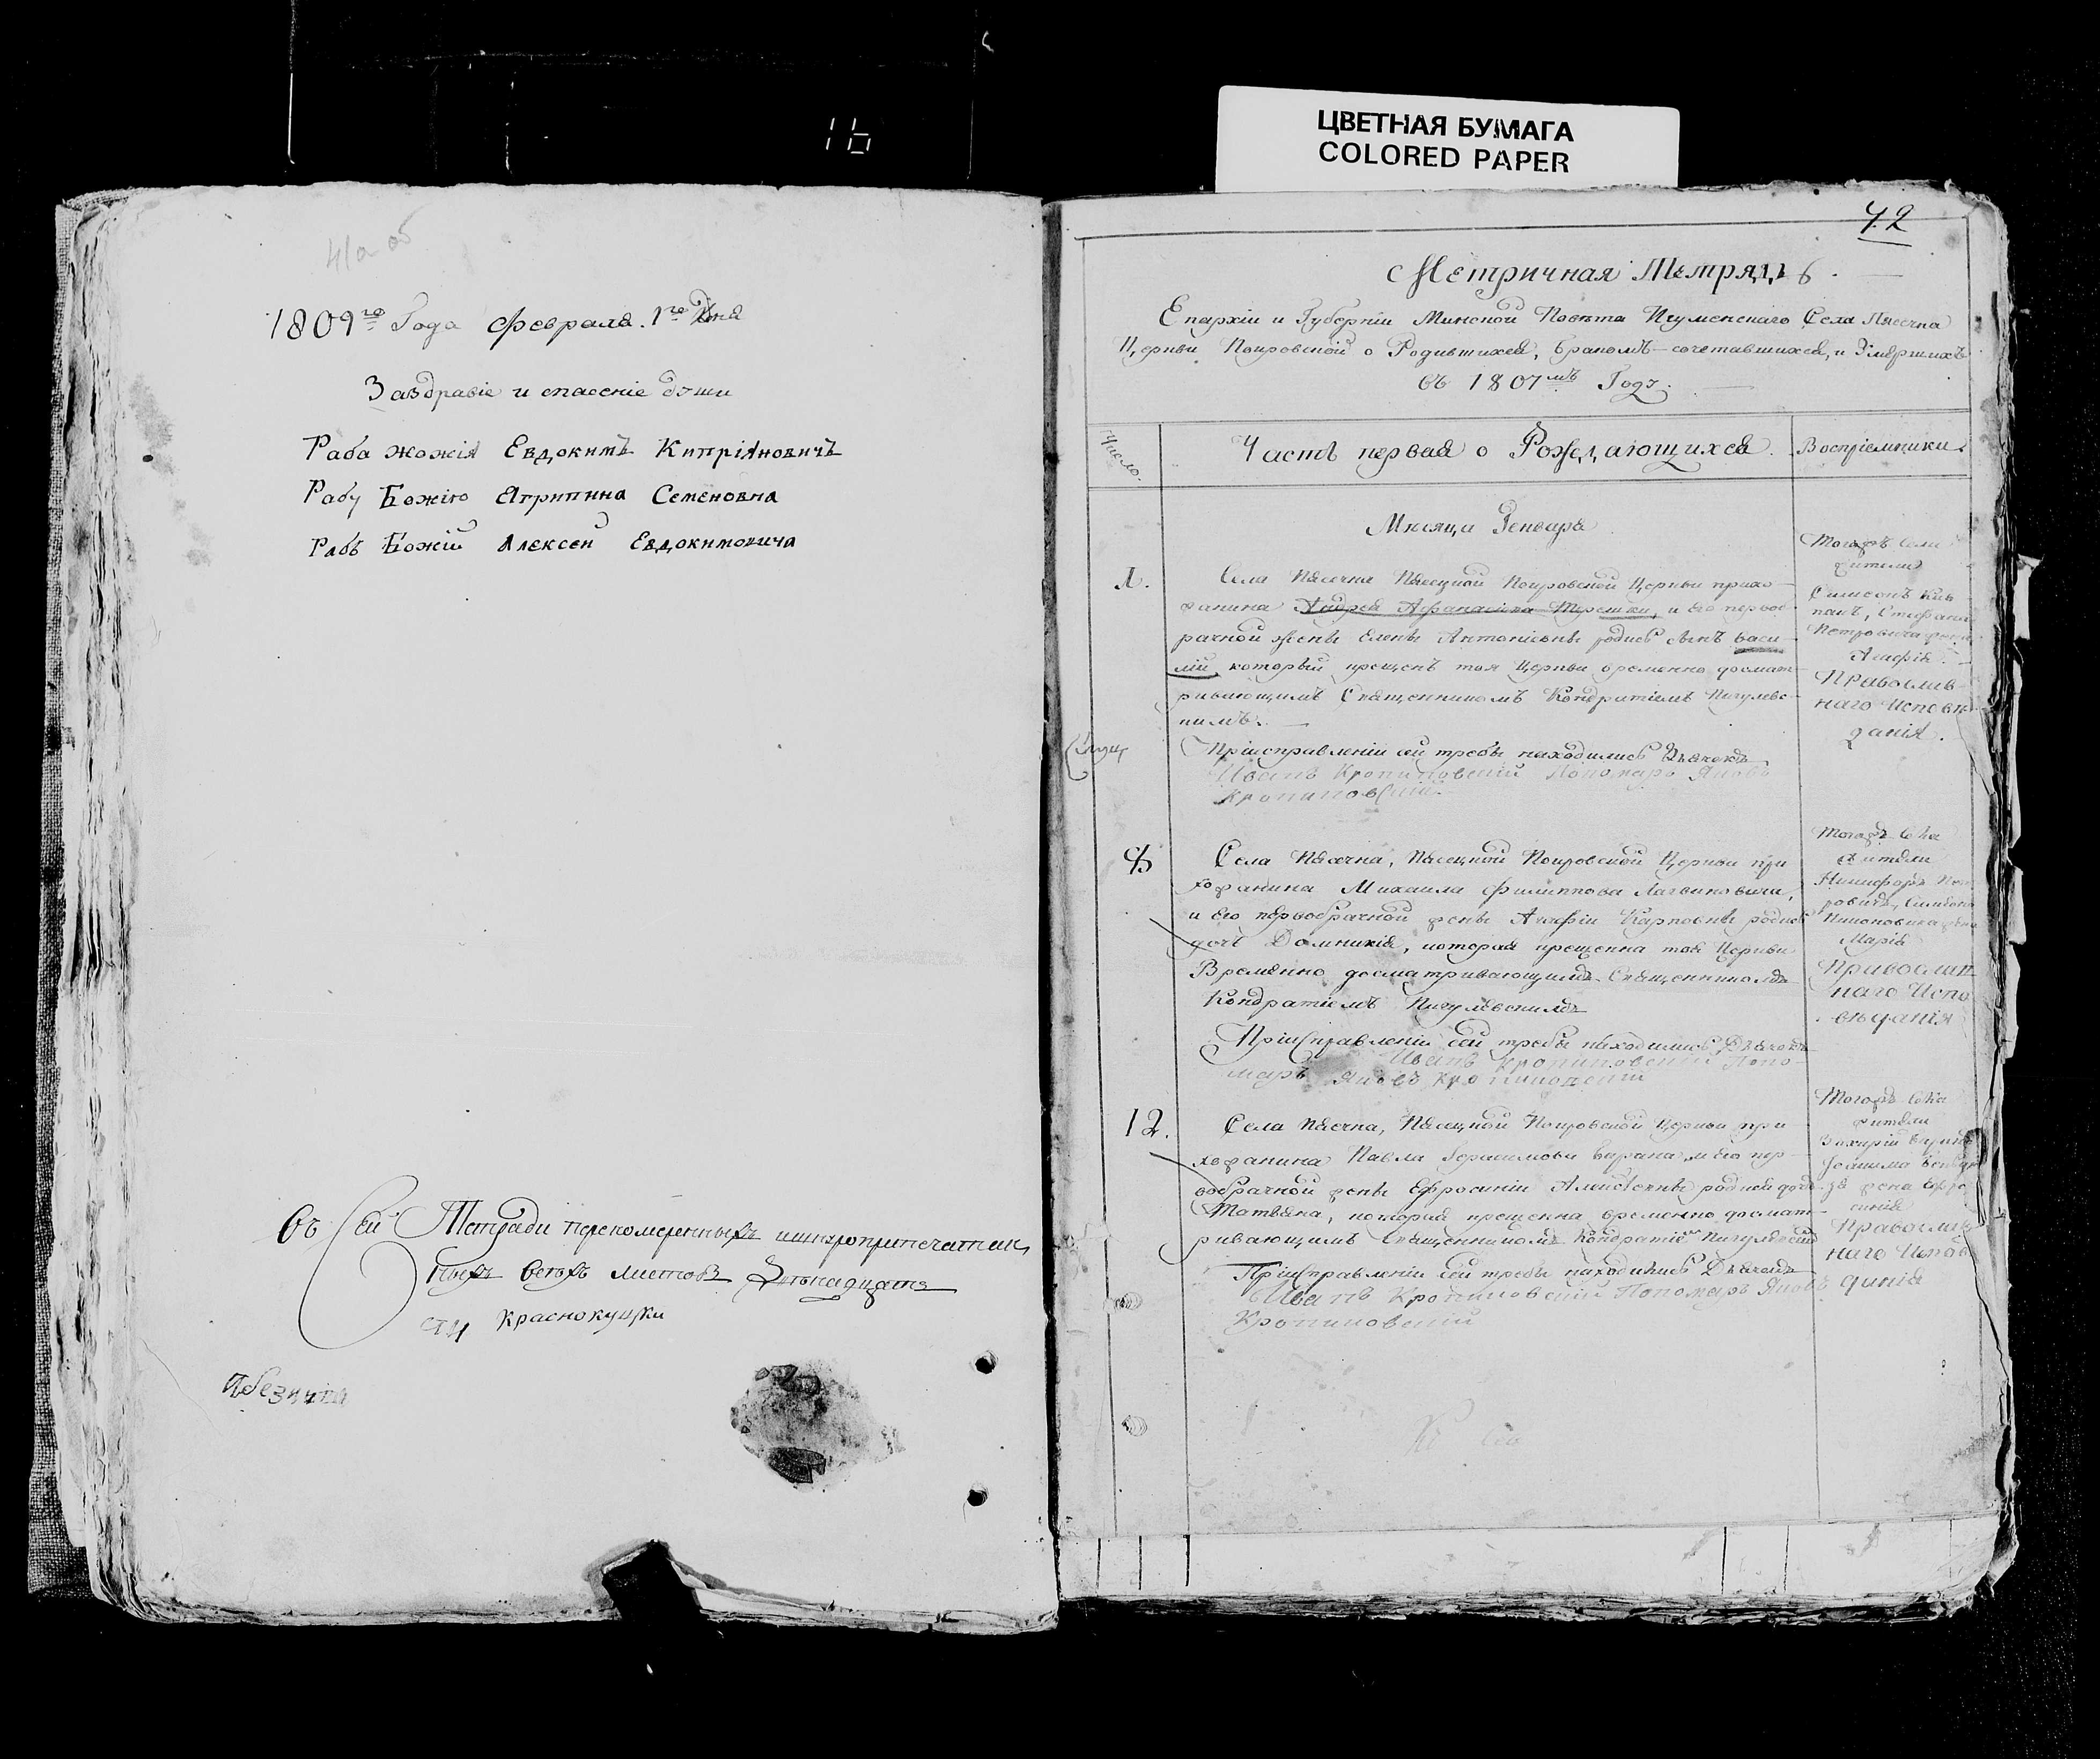 16
ЦВЕТНАЯ БУМАГА
COLORED PAPER
41а об
1809го Года Февраля 1го Дня
Заздравіе и спасеніе души
Раба жожія Евдокимъ Кипріяновичъ
Рабу Божію Агрипина Семеновна
Рабъ Божій Алексей Евдокимовича
Въ Сей Тетради перенумеренныхъ
всехъ листовъ
Краснокутски
42
Метричная Тетрадь
Епархіи и Губерніи Минской Повѣта Игуменскаго Села Пясечна
Церкви Покровской о Родившихся, бракомъ-сочетавшихся, и Умершихъ
въ 1807мъ Годѣ.
Число.
Часть первая о Рождающихся.
Воспріемники.
Мѣсяца Генваря
1.
Села Пясечна Пясецкой Покровской Церкви прихо-
жанина Андрея Афанасіева Терешки, и его первоб-
рачной жены Елены Антоніевны родись сынъ Васи-
лій, который крещенъ тоя Церкви временно досмат-
ривающимъ Священникомъ Кондратіемъ Пигулевс-
кимъ.
Приисправленіи сей требы находились Дьячокъ
Иванъ Кропиновскій Пономаръ Яковъ
Кропиновскій
Тогожъ села
жители
Симеонъ
Стефана
Петровича жена
Агафія
Православ-
наго Исповѣ
данія.
Села Пясечна, Пясецкой Покровской Церкви при
хожанина Михаила Филиппова
и его первобрачной жены Агафіи Карповны родись
дочь Домникія, которая крещенна тоя Церкви
Временно досматривающимъ Священникомъ
Кондратіемъ Пигулевскимъ
Приисправленіи сей требы находились Дьячокъ
Иванъ Кропиновскій Поно-
маръ Яковъ Кропиновскій
Тогожъ села
жители
Никифоръ Пет
ровичъ, Симеона
жена
Марія
Православ
наго Испо
вѣданія
12.
Села Пясечна, Пясецкой Покровской Церкви при-
хожанина Павла Герасимова Барана, и его пер-
вобрачной жены Ефросиніи Алексѣевны родися дочь
Татьяна, которая крещенна временно досмат-
ривающимъ Священникомъ Кондратіемъ Пигулевским
Приисправленіи сей требы находились Дьячокъ
Иванъ Кропиновскій Пономаръ Яковъ
Кропиновскій
Тогожъ села
жители
Захарій
жена Ефро
синія
Православ
наго Исповѣ
данія